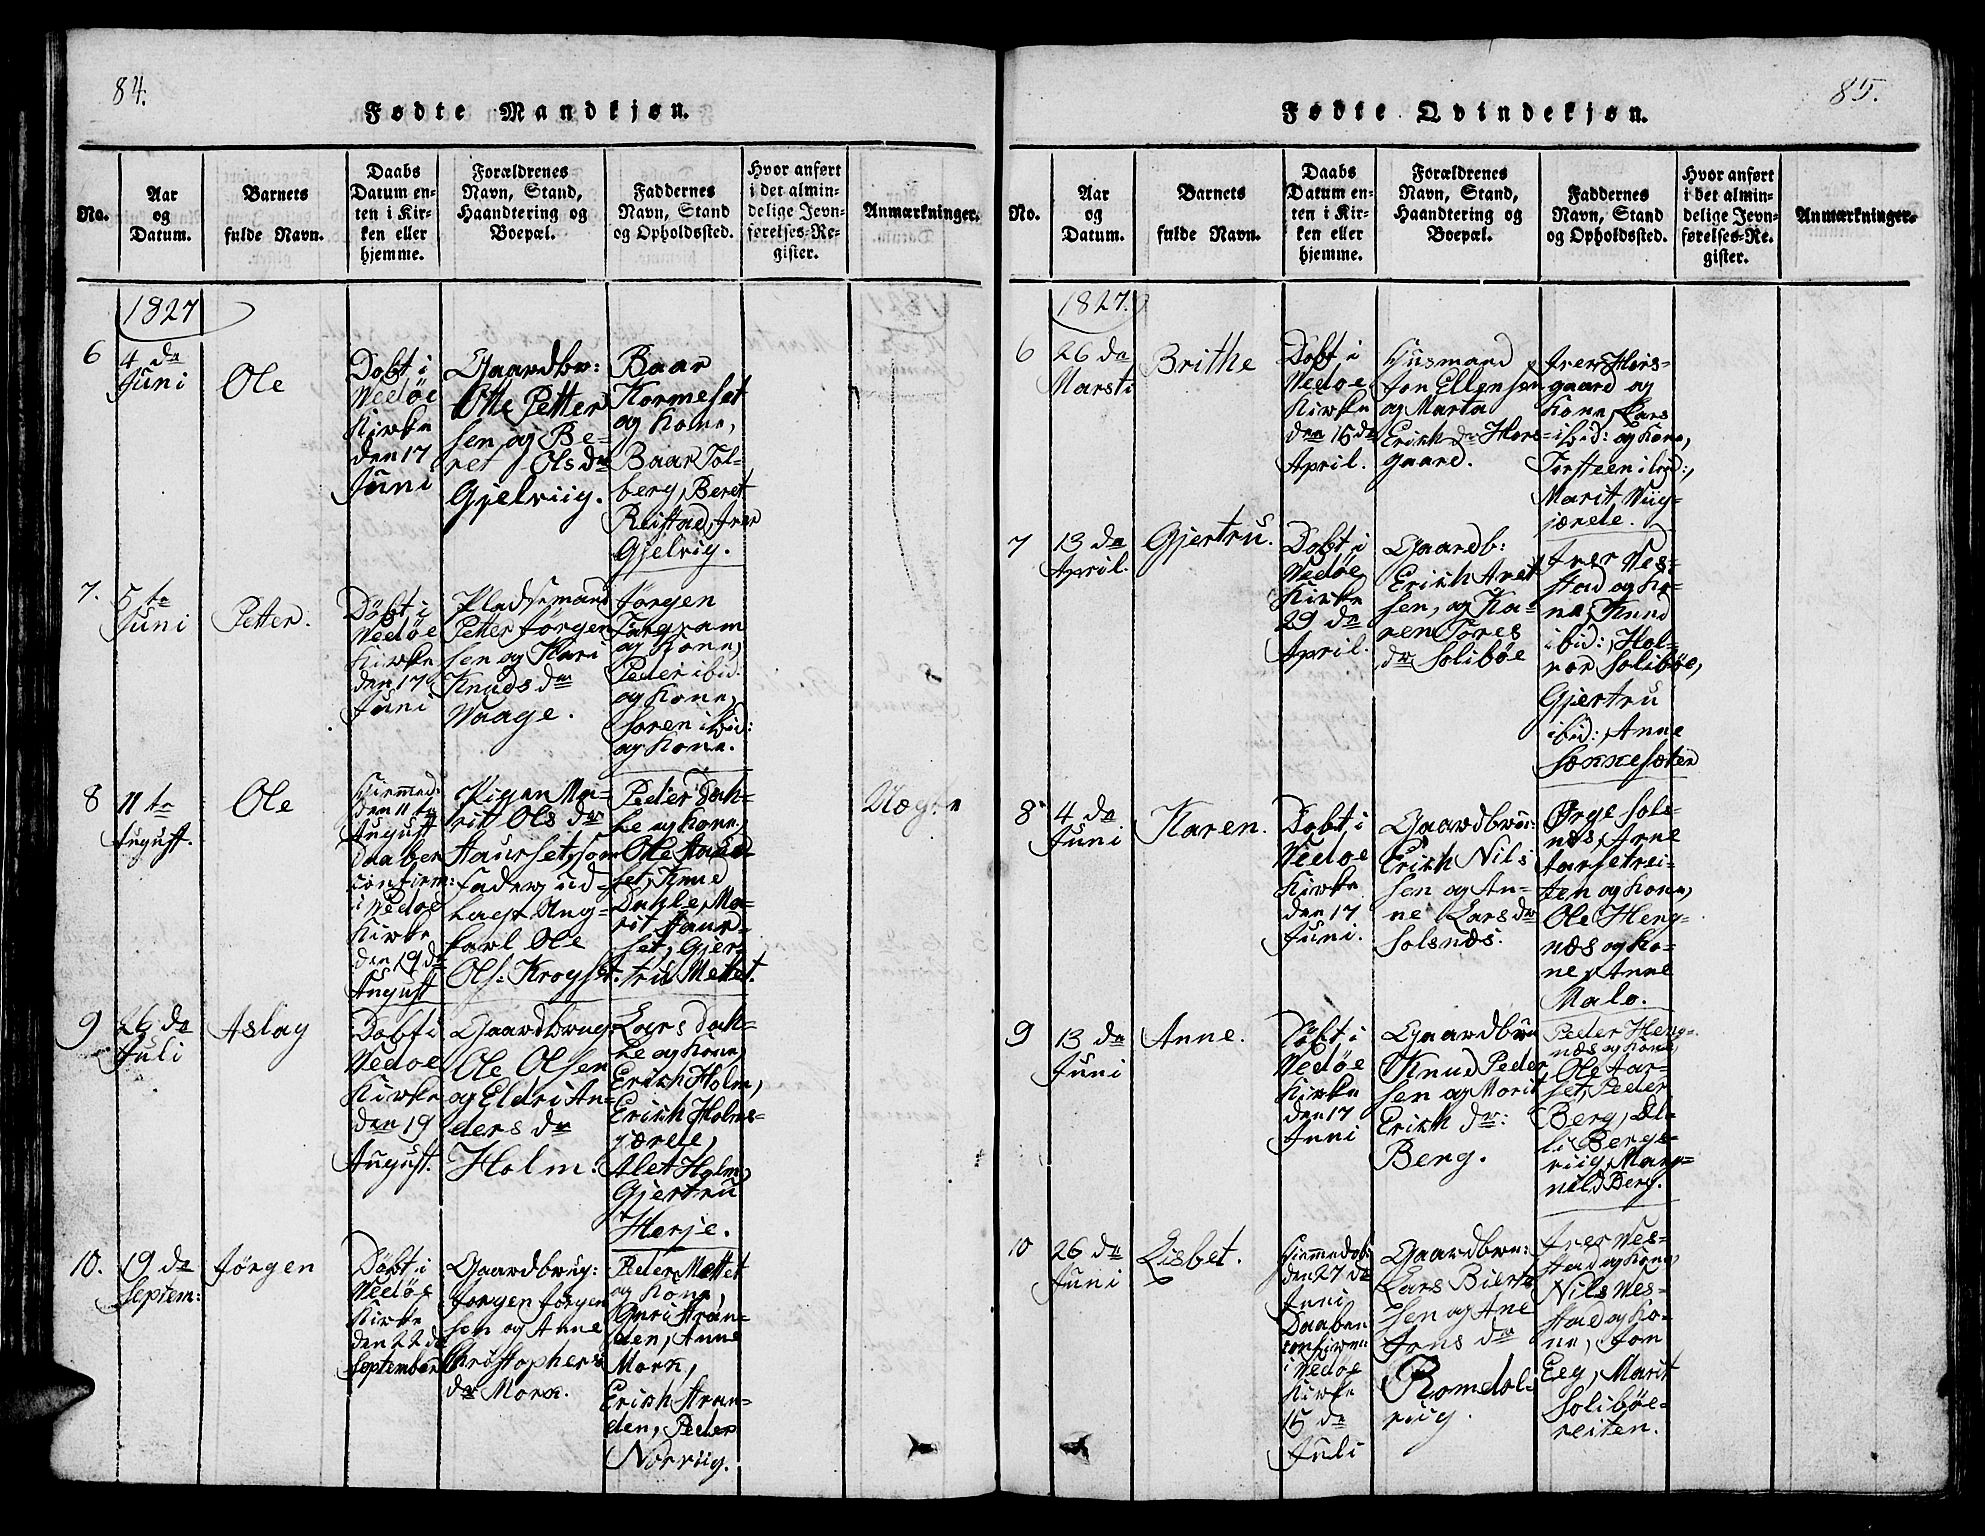 84.
Fødte Mandkjøn.
No.
Aar
og
Datum.
Barnets
fulde Navn.
Daabs
Datum en-
ten i Kir-
ken eller
hjemme.
Forældrenes
Navn, Stand,
Haandtering og
Boepæl.
Faddernes
Navn, Stand
og Opholdssted.
Hvor anført
i det almin-
delige Jevn-
førelses-Re-
gister.
Anmærkninger.
1827
6
4 de
Juni
Ole
Døbt i
Vedøe
Kirke
den 17
Juni
Gaardbr:
Otte Petter
sen og Be-
ret Olsdr
Gjelviig.
Baar
Kormeset
og Kone,
Baar Tol-
berg, Beret
Reistad, Iver
Gjelvig.
7.
5 te
Juni
Petter.
Døbt i
Vedøe
Kirke
den 17
Juni
Pladsemand
Petter Jørgen
sen og Kari
Knuds dr
Vaage.
Jørgen
Targram
og Kone,
Peder ibid:
og Kone,
Søren ibid:
og Kone.
8
11 te
August.
Ole
Hiemmed:
den 11 te
August
Daaben
confirm:
i Vedøe
Kirke
den 19 de
August
Pigen Ma-
rit Ols dr
Haurset, som
Fader, ud-
lagt Ung-
karl Ole
Ols: Krogset.
Peder Dah-
le og Kone,
Ole Haur-
set, Knud
Dahle, Ma-
rit Haur-
set, Gjer-
tru Mettet.
Uægte
9
26 de
Juli
Aslag
Døbt i
Vedøe
Kirke
den 19
August.
Gaardbrug:
Ole Olsen
og Eldri An-
ders dr
Holm.
Lars Dah-
le og Kone,
Erich Holm,
Erich Holms-
jærele,
Alet Holm,
Gjertru
Herje.
10.
19 de
Septem:
Jørgen
Døbt i
Vedøe
Kirke
den 22 de
September
Gaardbrug:
Jørgen Jørgen
sen og Anne
Christophers
dr Morn.
Peder Mettet
og Kone,
Guri Stran-
den, Anne
Morn,
Erich Stran-
den, Peder
Norviig.
85.
Fødte Qvindekjøn.
No.
Aar
og
Datum.
Barnets
fulde Navn.
Daabs
Datum en-
ten i Kir-
ken eller
hjemme.
Forældrenes
Navn, Stand,
Haandtering og
Boepæl.
Faddernes
Navn, Stand
og Opholdssted.
Hvor anført
i det almin-
delige Jevn-
førelses-Re-
gister.
Anmærkninger.
1827.
6
26 de
Marsti
Brithe
Døbt i
Vedøe
Kirke
den 15 de
April.
Husmand
Jon Ellensen
og Marta
Erich dr Hers-
gaard.
Iver Hers-
gaard og
Kone, Lars
ibid: og Kone,
Torsteen ibid:,
Marit Viig-
jærele.
7
13 de
April.
Gjertru.
Døbt i
Vedøe
Kirke
29 de
April.
Gaardb:
Erich Aret
sen, og Ka-
ren Tores
dr Solibøe
Iver Ves-
stad og Ko-
ne, Knud
ibid:, Hol-
vor Solibøe,
Gjertru
ibid:, Anne
Sønnesæter
8
4 de
Juni
Karen.
Døbt i
Vedøe
Kirke
den 17
Juni.
Gaardbru:
Erich Nils
sen og An-
ne Lars dr
Solsnæs.
Ørge Sols-
næs, Arne
Aarsetrei-
ten og Kone,
Ole Heng-
næs og Ko-
ne, Anne
Malo.
9
13 de
Juni
Anne.
Døbt i
Vedøe
Kirke
den 17
Juni
Gaardbru
Knud Peder
sen og Morit
Erich dr:
Berg.
Peder Heng-
næs og Kone,
Ole Aar-
set, Peder
Berg, El-
li Bergs-
viig, Mag-
nild Berg.
10
26 de
Juni
Lisbet.
Hiemmedøb:
den 27 de
Juni
Daaben
confirme
i Vedøe
Kirke
15 de
Juli
Gaardbru:
Lars Bierte
sen og Ane
Jons dr
Romdol-
viig.
Iver Ves-
stad og Kone,
Nils Ves-
stad og Ko-
ne, Jon
Eeg, Marit
Solibøe-
reiten.